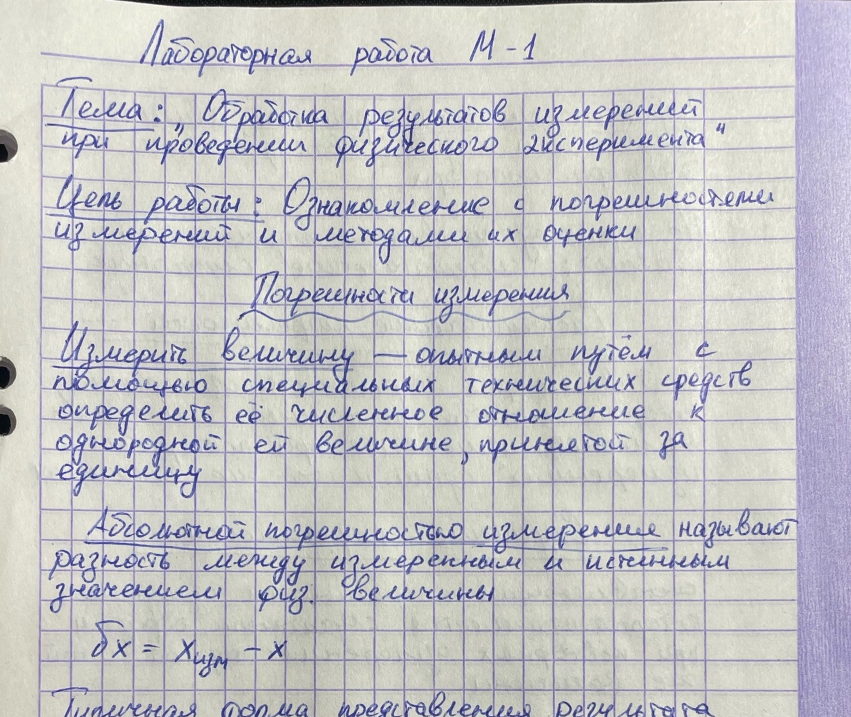 Лабораторная работа М-1
Тема: „Обработка результатов измерений
при проведении физического эксперимента“
Цель работы: Ознакомление с погрешностями
измерений и методами их оценки
Погрешности измерения
Измерить величину — опытным путём с
помощью специальных технических средств
определить её численное отношение к
однородной ей величине, принятой за
единицу
Абсолютной погрешностью измерения называют
разность между измеренным и истинным
значением физ. величины
δx = xизм - x
Типичная форма представления результата